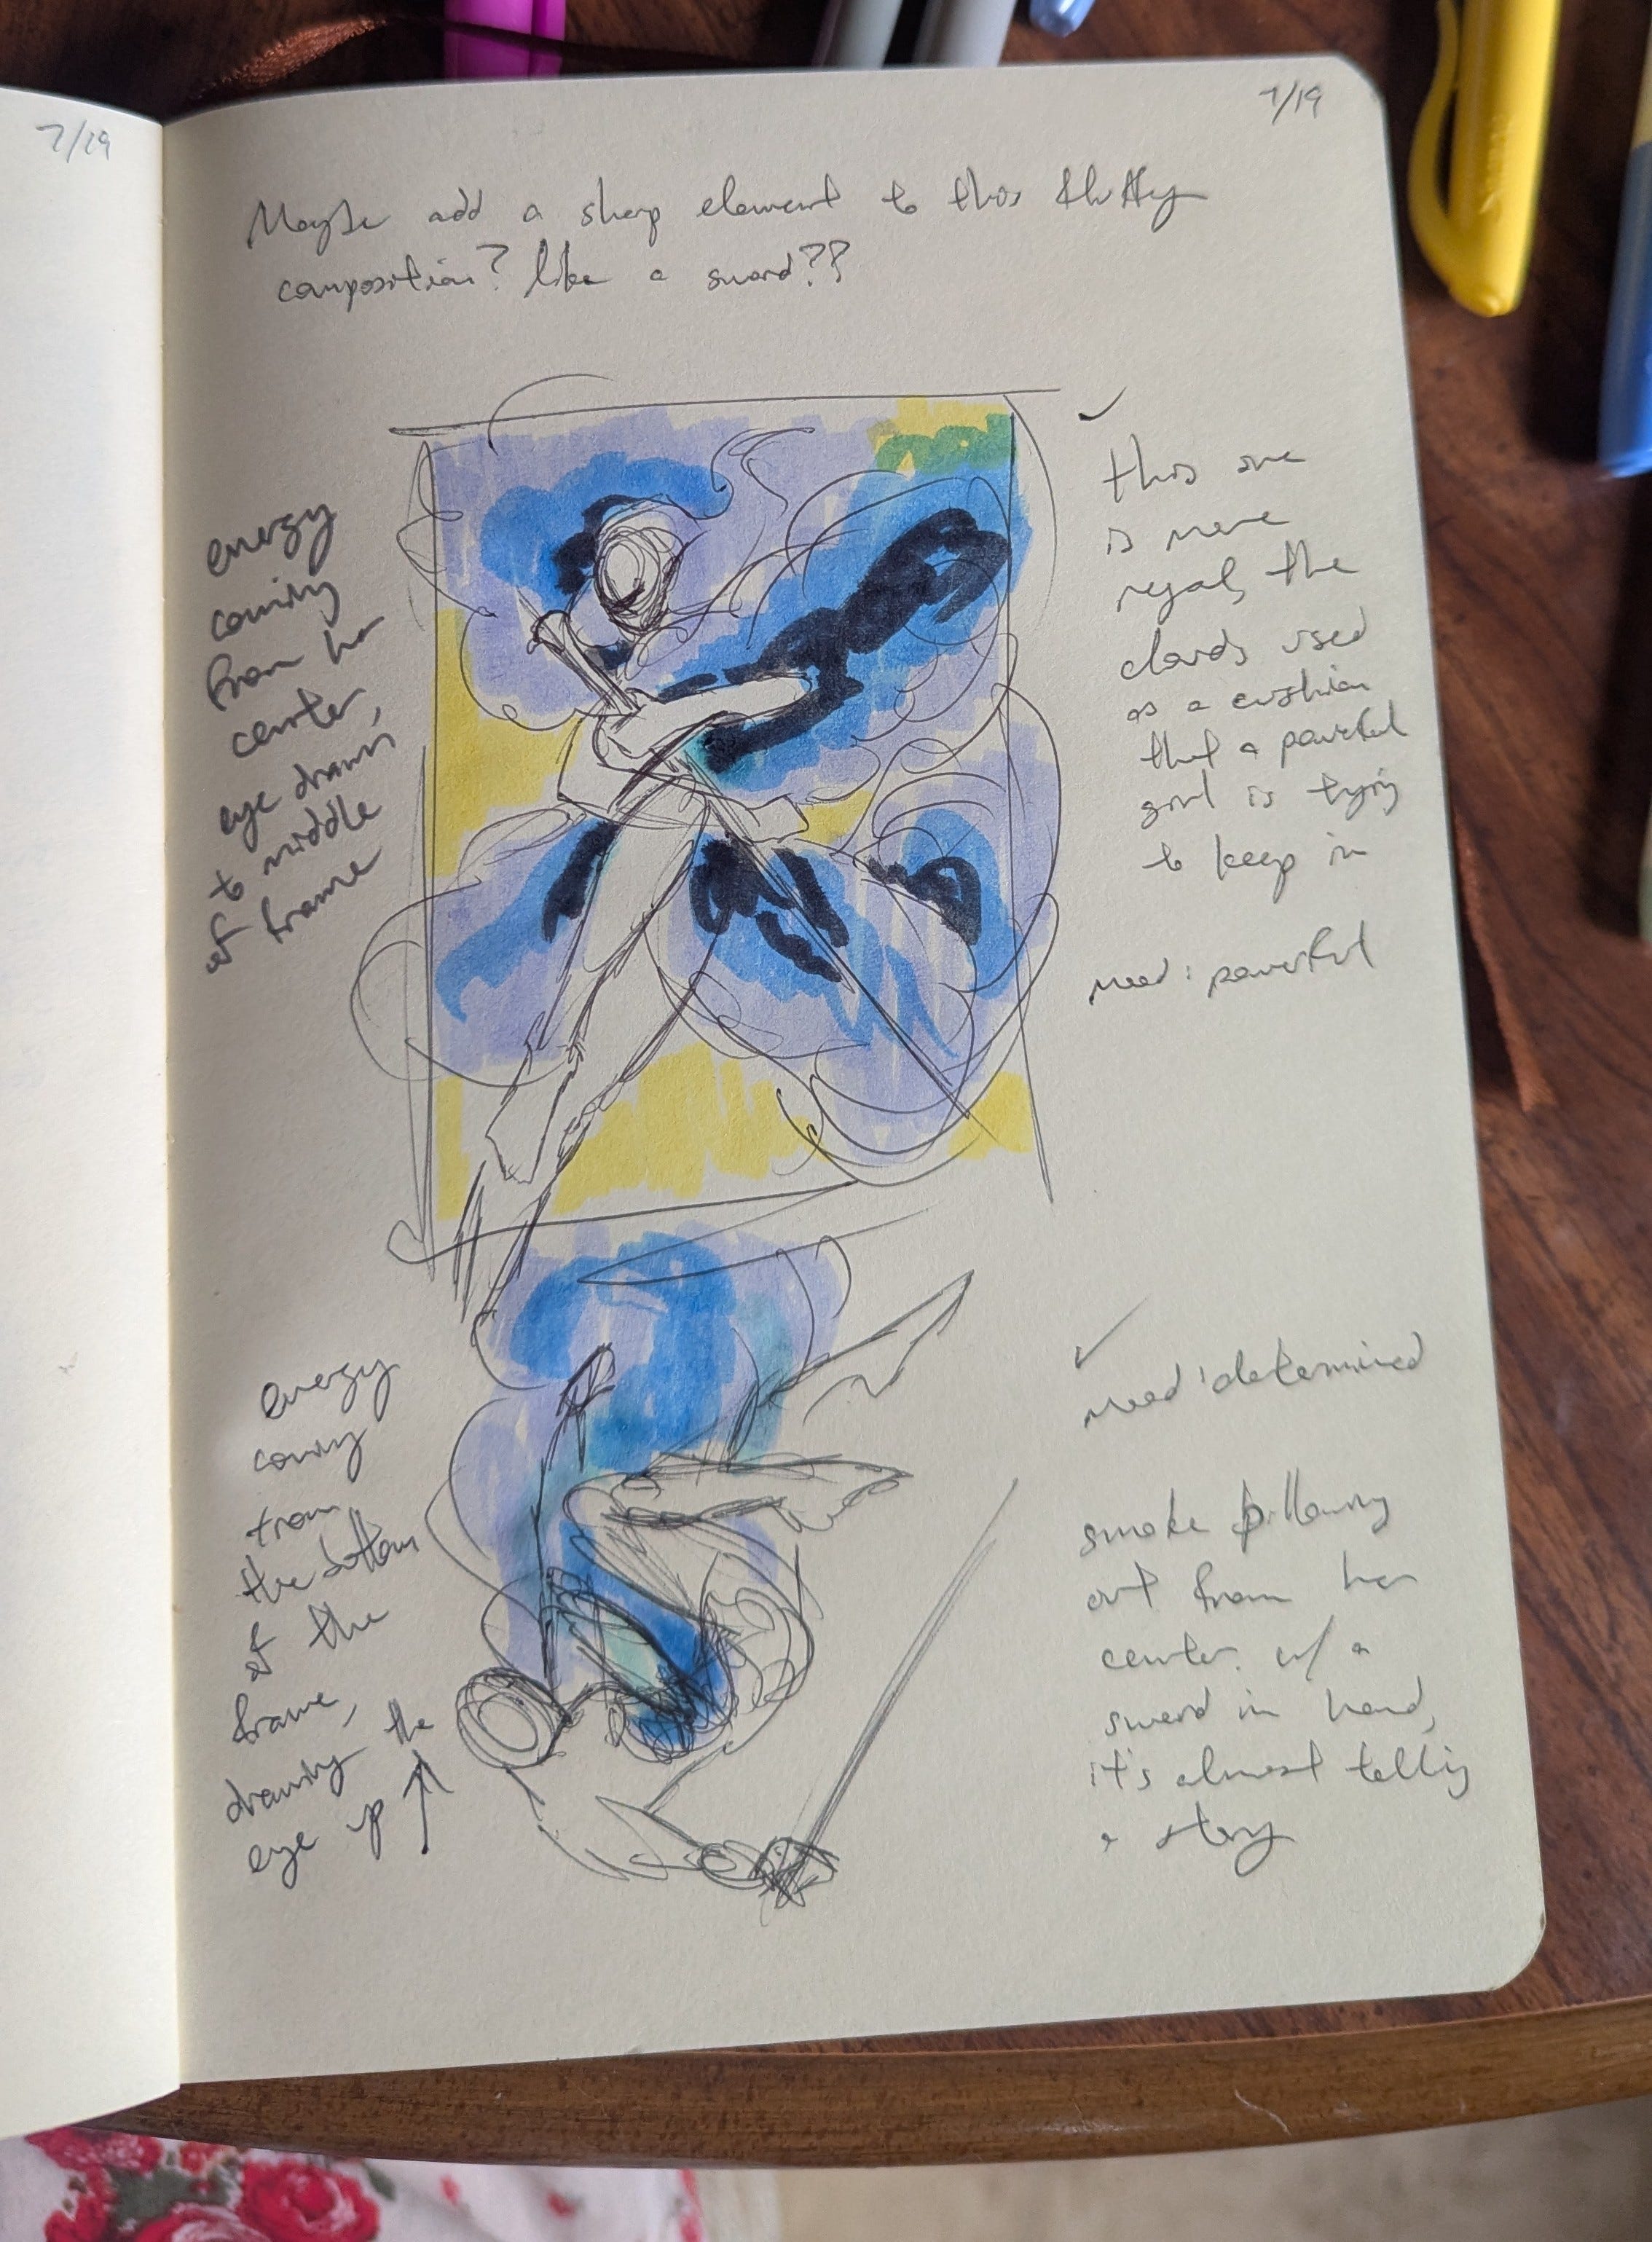 7/29
7/19
Maybe add a sharp element to this fluffy
composition? like a sword??
energy
coming
from her
center,
eye drawn
to middle
of frame
✓
this one
is more
regal, the
clouds used
as a cushion
that a powerful
girl is trying
to keep in
mood: powerful
energy
coming
from
the bottom
of the
frame,
drawing the
eye up ↑
✓
mood: determined
smoke billowing
out from her
center. w/ a
sword in hand,
it's almost telling
a story